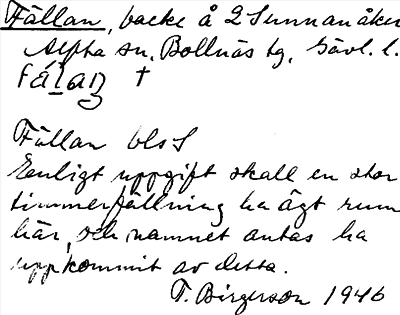 Fällan, backe å 2 Sunnanåker
Alfta sn, Bollnäs tg, Gävl. l.
fälaŋ †
Fällan bls S
Enligt uppgift skall en stor
timmerfällning ha ägt rum
här, och namnet antas ha
uppkommit av detta.
T. Birgerson 1946